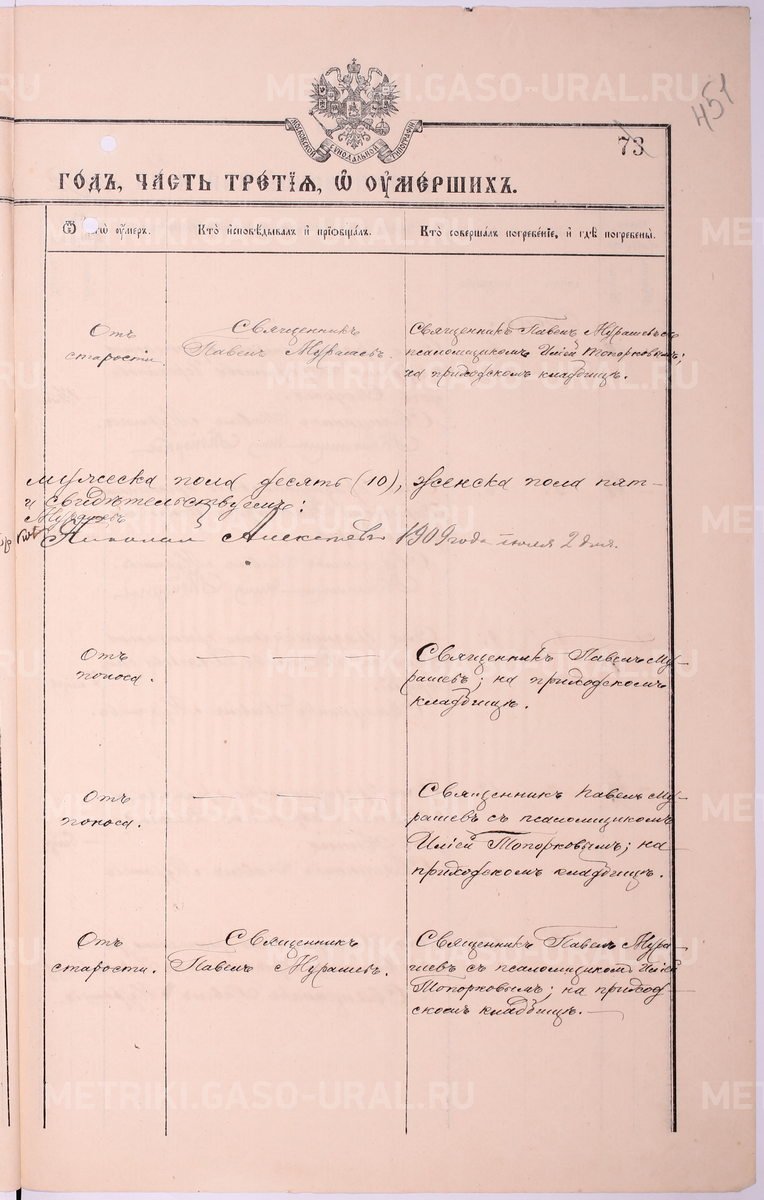 451
МОСКОВСКОЙ СѴНОДАЛЬНОЙ ТИПОГРАФІИ
73
ГОДЪ, ЧАСТЬ ТРЕТІЯ, Ѿ ОУМЕРШИХЪ.
оумеръ.
Кто исповѣдывалъ и пріобщалъ.
Кто совершалъ погребеніе, и гдѣ погребены.
Отъ
старости.
Священникъ
Павелъ Мурашевъ.
Священникъ Павелъ Мурашевъ съ
псаломщикомъ Иліей Топорковымъ;
на приходскомъ кладбищѣ.
мужеска пола десять (10), женска пола пят-
и свидѣтельствуемъ:
Николай Алексѣевъ 1909 года іюля 2 дня.
Отъ
поноса.
Священникъ Павелъ Му-
рашевъ; на приходскомъ
кладбищѣ.
Отъ
поноса.
Священникъ Павелъ Му-
рашевъ съ псаломщикомъ
Иліей Топорковымъ; на
приходскомъ кладбищѣ.
Отъ
старости.
Священникъ
Павелъ Мурашевъ.
Священникъ Павелъ Мура-
шевъ съ псаломщикомъ Иліей
Топорковымъ; на приход-
скомъ кладбищѣ.
METRIKI.GASO-URAL.RU